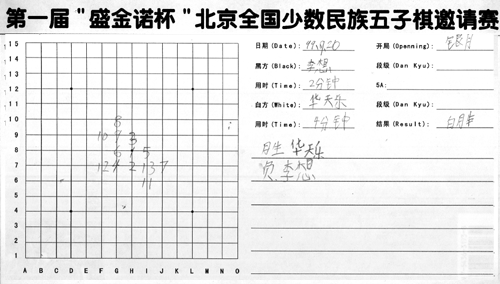 第一届"盛金诺杯"北京全国少数民族五子棋邀请赛
日期(Date): 99.9.20 开局(Openning):
黑方(Black): 李想 段级(Dan Kyu):
用时(Time): 2分钟 5A:
白方(White): 华天乐 段级(Dan Kyu):
用时(Time): 4分钟 结果(Result): 白胜
胜 华天乐
负 李想
15
14
13
12
11
10
9
8
7
6
5
4
3
2
1
8
10 9 3
6 1 5
12 4 2 13 7
11
A B C D E F G H I J K L M N O